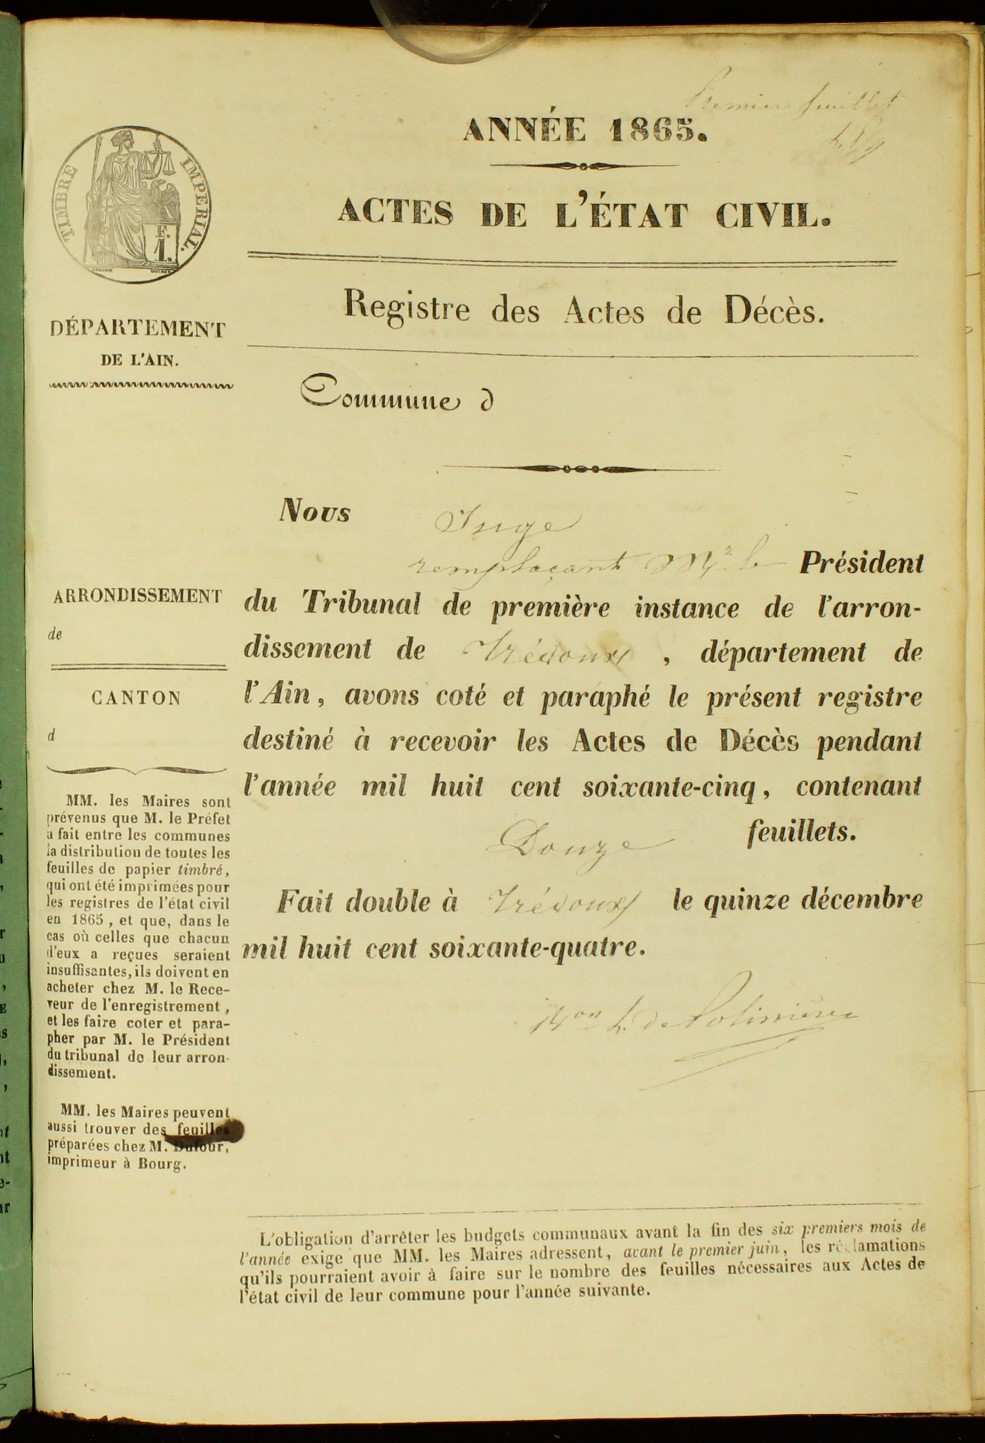 Premier feuillet
ANNÉE 1865.
ACTES DE L'ÉTAT CIVIL.
TIMBRE IMPERIAL.
F.
1.
DÉPARTEMENT
DE L'AIN.
Registre des Actes de Décès.
Commune d
Nous Juge
remplaçant Mr le Président
du Tribunal de première instance de l'arron-
dissement de Trévoux, département de
l'Ain, avons coté et paraphé le présent registre
destiné à recevoir les Actes de Décès pendant
l'année mil huit cent soixante-cinq, contenant
Douze feuillets.
Fait double à Trévoux le quinze décembre
mil huit cent soixante-quatre.
ARRONDISSEMENT
de
CANTON
d
MM. les Maires sont
prévenus que M. le Préfet
a fait entre les communes
la distribution de toutes les
feuilles de papier timbré,
qui ont été imprimées pour
les registres de l'état civil
en 1865, et que, dans le
cas où celles que chacun
d'eux a reçues seraient
insuffisantes, ils doivent en
acheter chez M. le Rece-
veur de l'enregistrement,
et les faire coter et para-
pher par M. le Président
du tribunal de leur arron-
dissement.
MM. les Maires peuvent
aussi trouver des feuilles
préparées chez M. Dufour,
imprimeur à Bourg.
L'obligation d'arrêter les budgets communaux avant la fin des six premiers mois de
l'année exige que MM. les Maires adressent, avant le premier juin, les réclamations
qu'ils pourraient avoir à faire sur le nombre des feuilles nécessaires aux Actes de
l'état civil de leur commune pour l'année suivante.